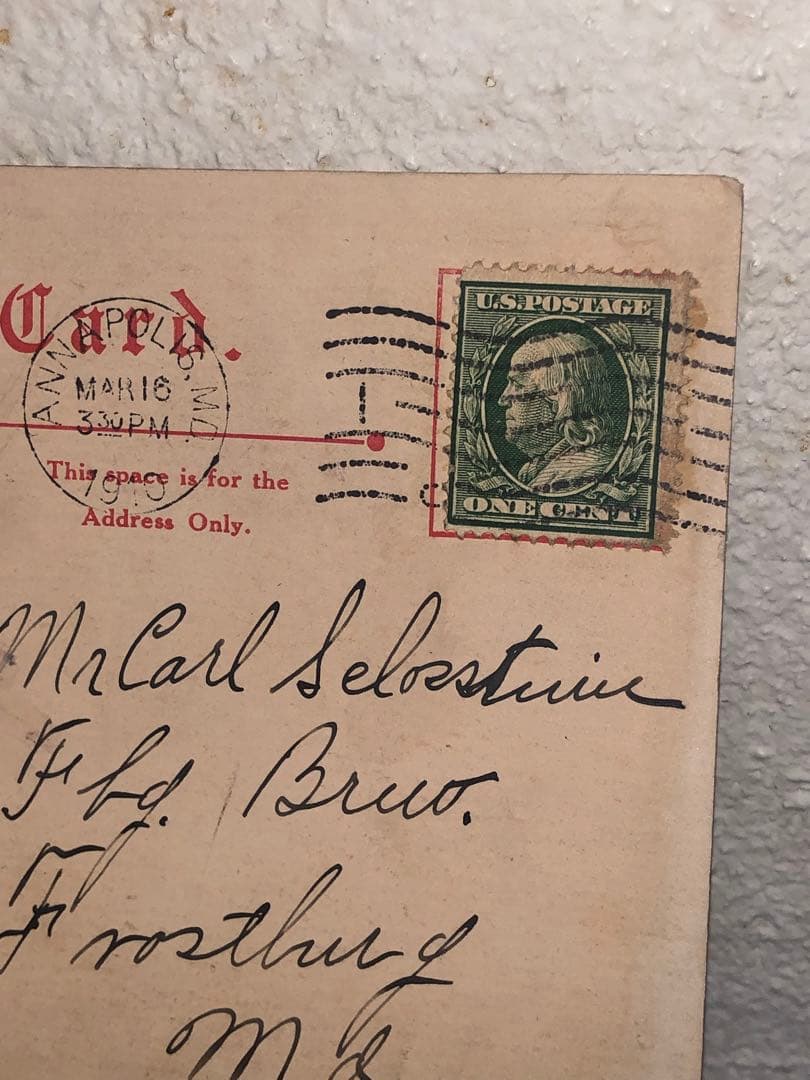 Card.
ANNAPOLIS, MD.
MAR 16
3 30 PM
U.S. POSTAGE
ONE CENT
This space is for the
Address Only.
Mr Carl
Fbg. Brew.
Frostburg
Md